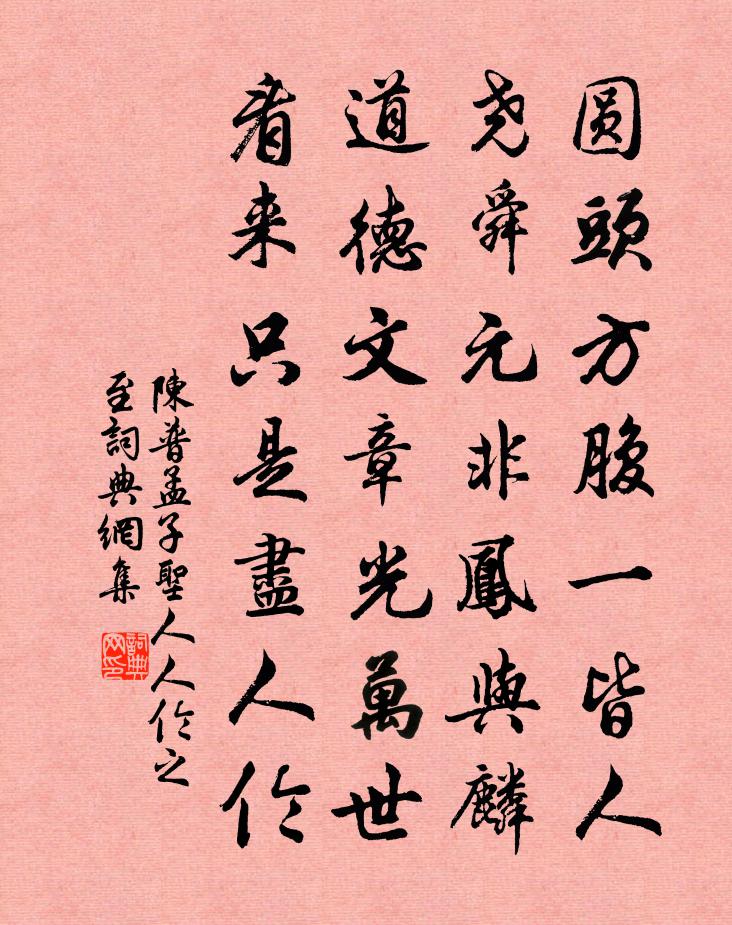 圓頭方腹一皆人
尧舜元非鳳與麟
道德文章光萬世
看来只是盡人伦
陳普孟子聖人人伦之
至詞典網集
詞典
网印